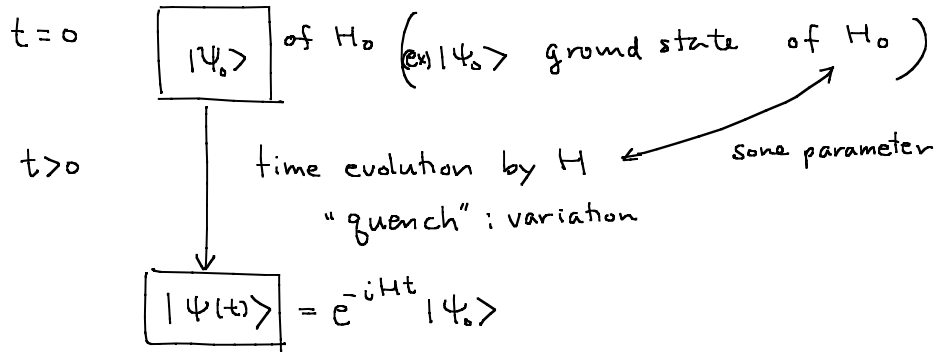 t = 0 |Ψ₀> of H₀ ((ex) |Ψ₀> ground state of H₀)
t > 0 time evolution by H some parameter
"quench" : variation
|Ψ(t)> = e^{-iHt} |Ψ₀>